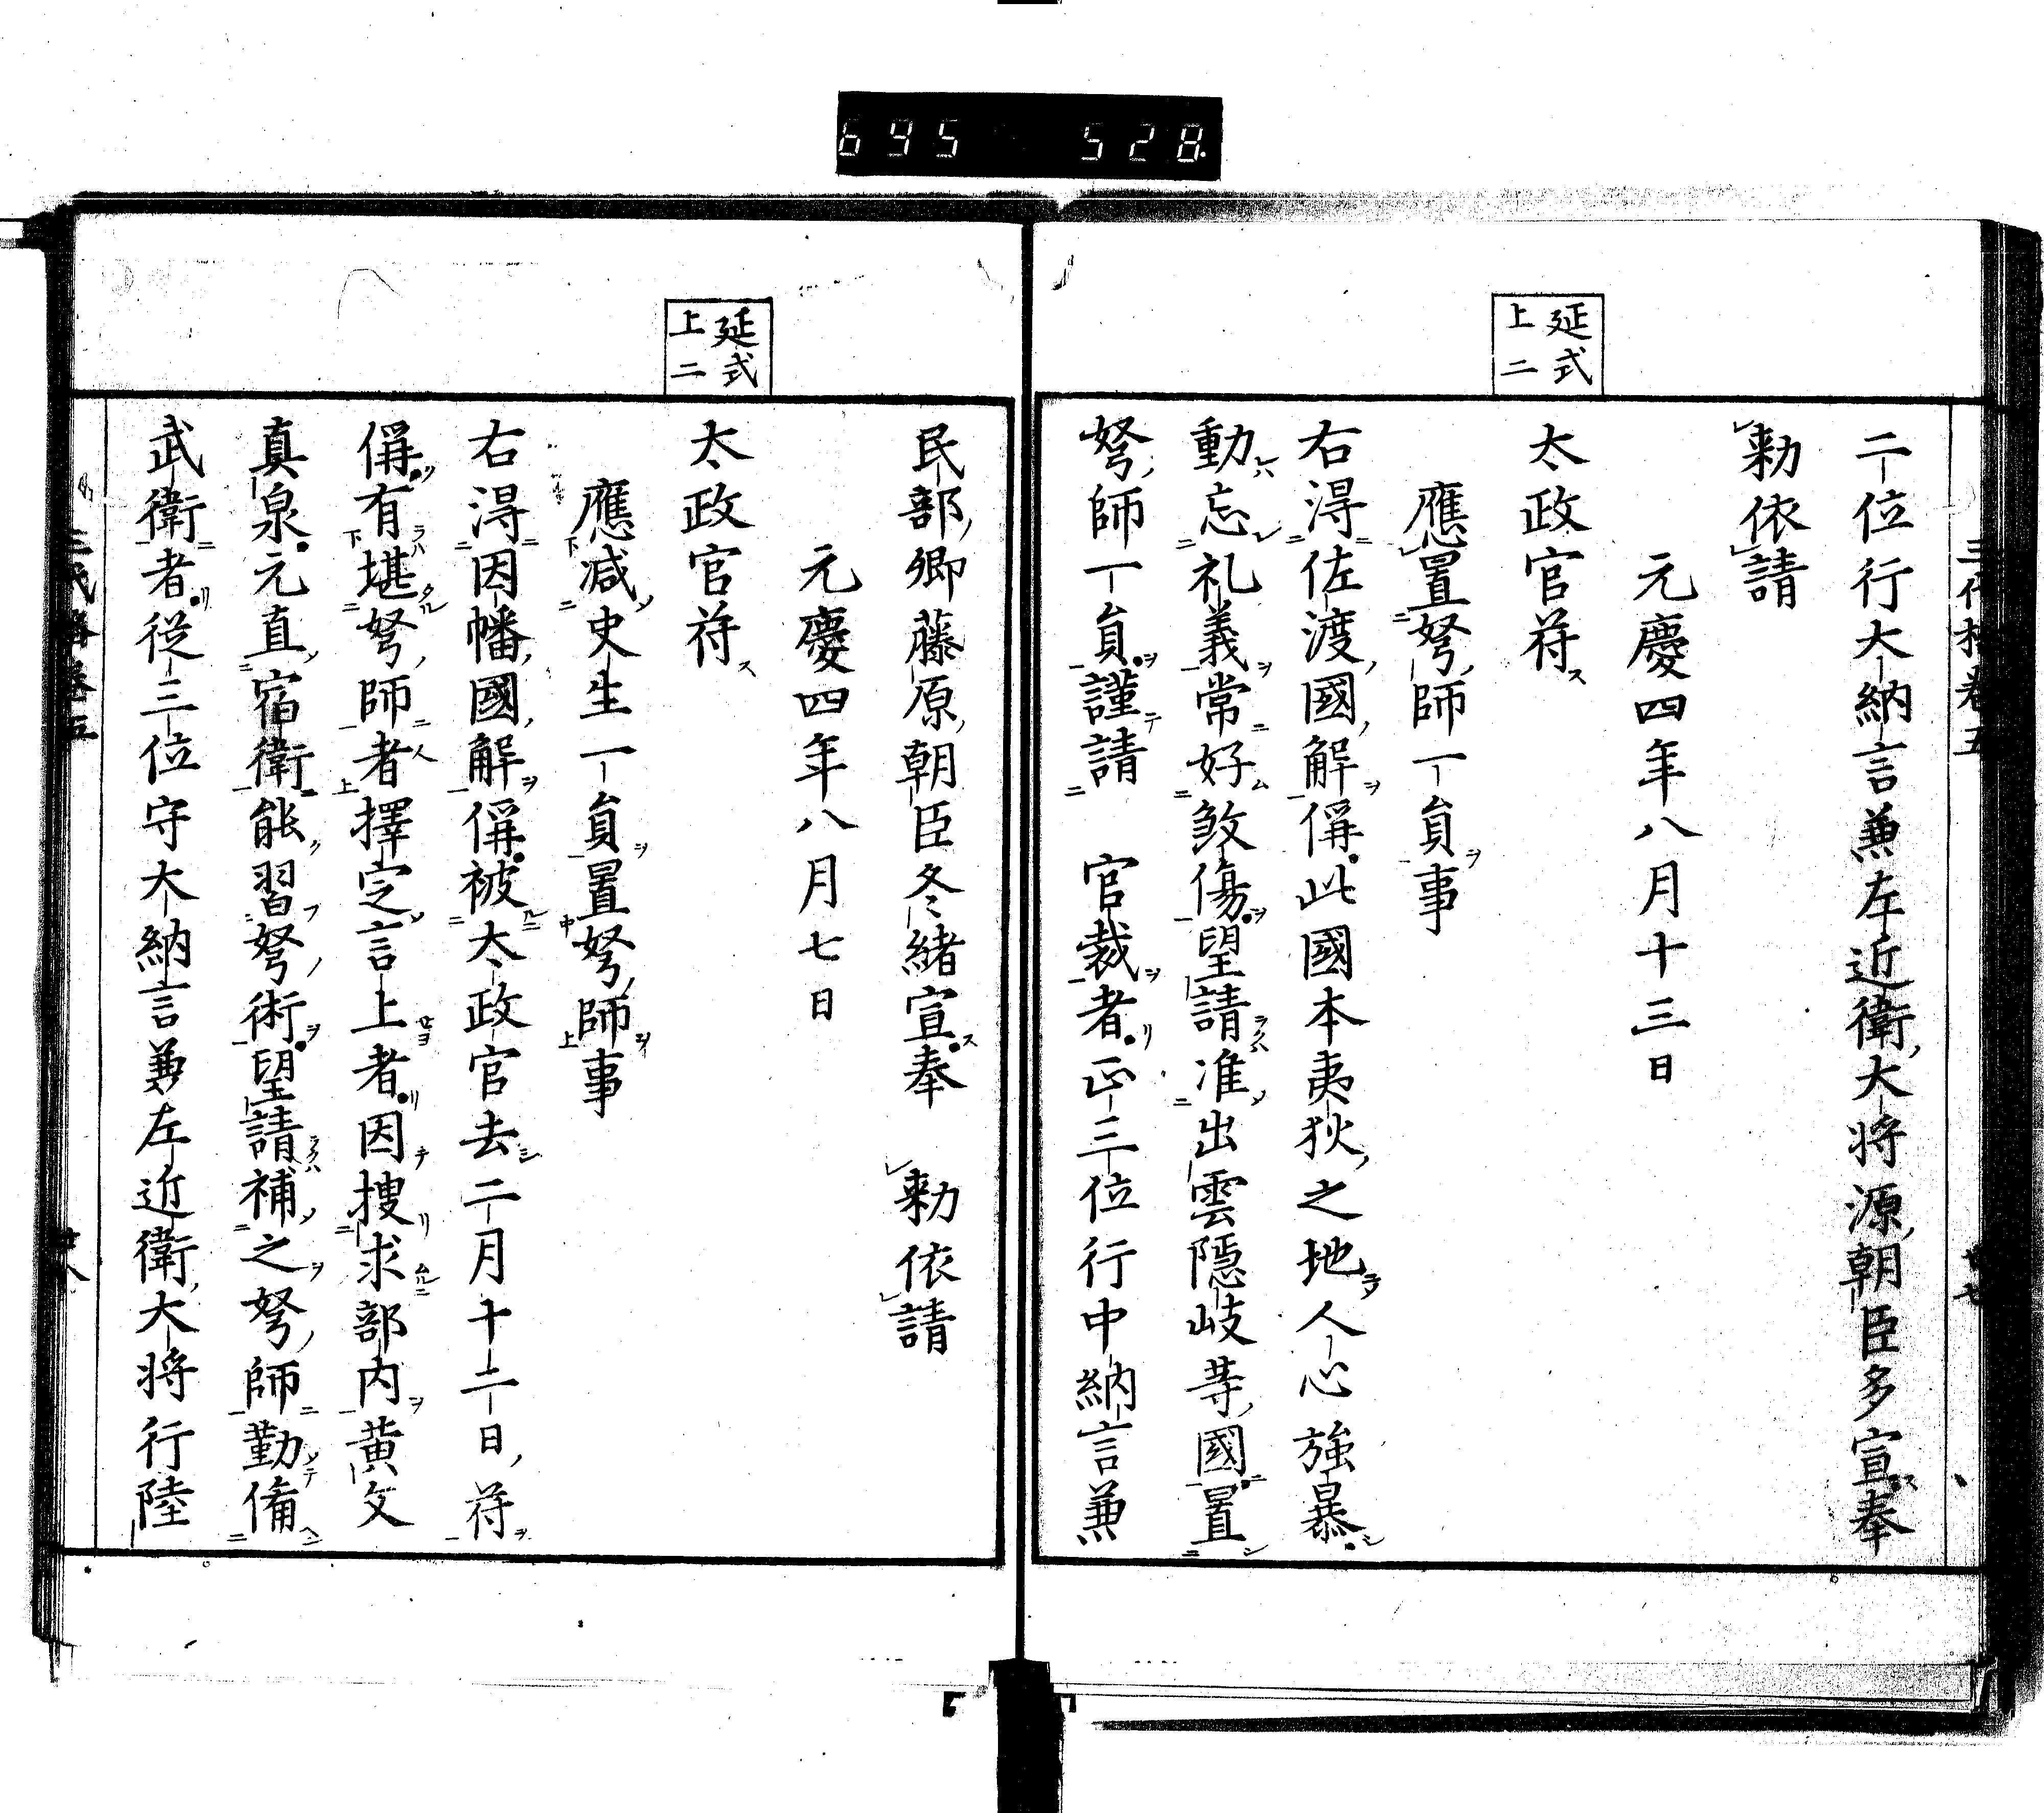 695 528
三代格卷五 廿七
二位行大納言兼左近衛大将源朝臣多宣奉
勅依請
元慶四年八月十三日
延式
上二
太政官符ス
應置弩師一員ヲ事
右淂佐渡國解ヲ偁此國本夷狄之地人心强暴
動忘礼義ヲ常好ム煞傷ヲ望請准出雲隠岐等國置
弩師一員ヲ謹請 官裁ヲ者正三位行中納言兼
民部卿藤原朝臣冬緒宣ス奉 勅依請
元慶四年八月七日
延式
上二
太政官符ス
應减史生一員ヲ置弩師事
右淂因幡國解ヲ偁被太政官去二月十二日符ヲ
偁有堪弩師者擇定言上者因搜求部内ヲ黄文
真泉元直宿衛能習弩術ヲ望請補之弩師勤備
武衛者從三位守大納言兼左近衛大将行陸
廿八